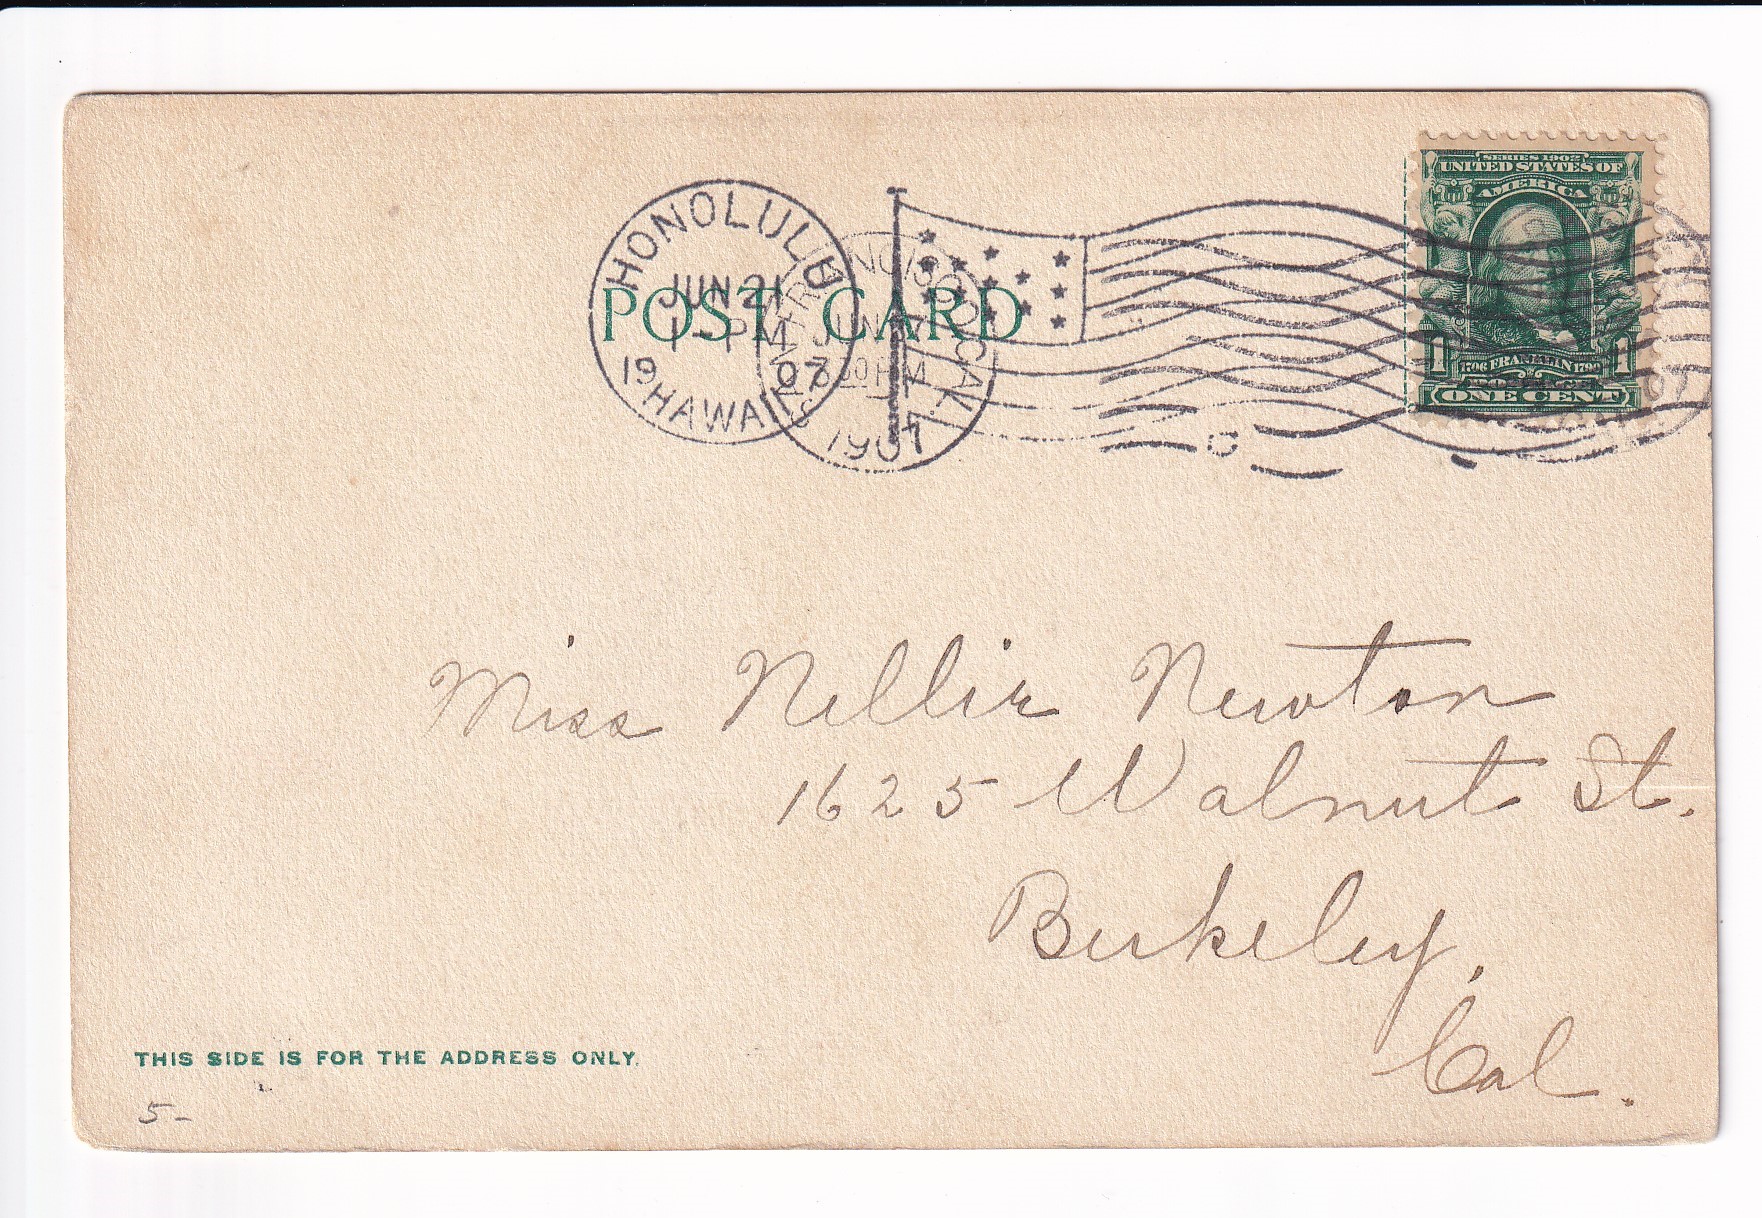 SERIES 1902
UNITED STATES OF
AMERICA
1 1
FRANKLIN
ONE CENT
HONOLULU
JUN 21
1 - PM
1907
HAWAII
SAN FRANCISCO, CAL.
JUN
1907
POST CARD
Miss Nellie Newton
1625 Walnut St.
Berkeley,
Cal.
THIS SIDE IS FOR THE ADDRESS ONLY.
5-